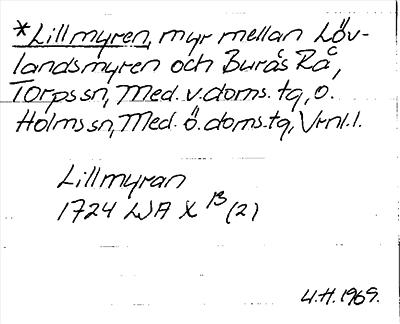 *Lillmyren, myr mellan Löv-
landsmyren och Burås Rå,
Torps sn, Med. v. doms. tg, o.
Holms sn, Med. ö. doms. tg, Vrnl. l.
Lillmyran
1724 LJA X 13 (2)
U.H. 1969.